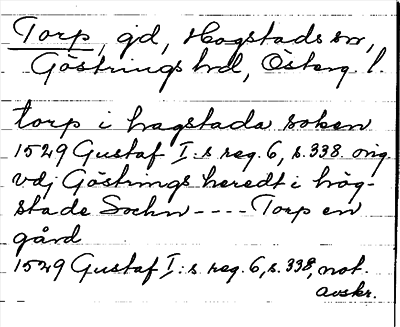 Torp, gd, Hogstads sn,
Göstrings hd, Österg l.
torp i hagstada soken
1529 Gustaf I:s reg. 6, s. 338. orig.
vdj Göstrings heredt i hög-
stade Sochn ---- Torp en
gård
1529 Gustaf I:s reg. 6, s. 338, not.
avskr.